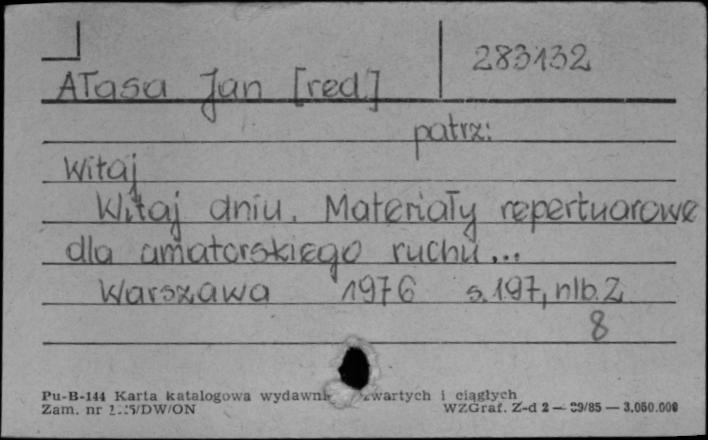 283132
Ałasa Jan [red.]
patrz:
Witaj
Witaj dniu. Materiały repertuarowe
dla amatorskiego ruchu...
Warszawa 1976 s. 197, nlb. 2
8
Pu-B-144 Karta katalogowa i ciągłych
Zam. nr WZGraf. Z-d 2 — 29/85 — 3,050.000